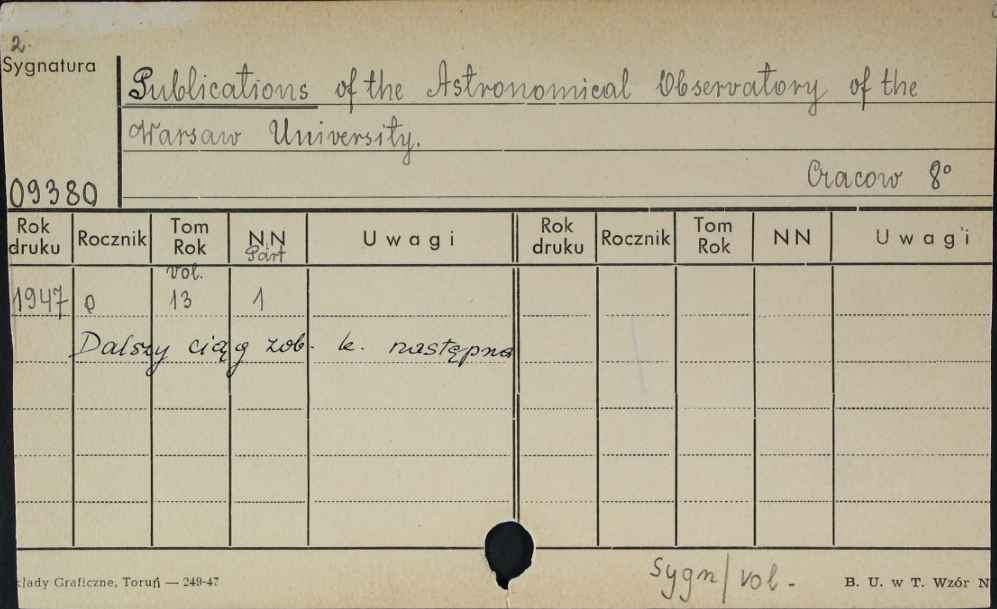 2.
Sygnatura
Publications of the Astronomical Observatory of the
Warsaw University.
Cracow 8°
09380
Rok druku Rocznik Tom Rok NN Part Uwagi Rok druku Rocznik Tom Rok NN Uwagi
vol.
1947 13 1
Dalszy ciąg zob. k. następna
sygn/vol.
kłady Graficzne, Toruń — 249-47 B. U. w T. Wzór N